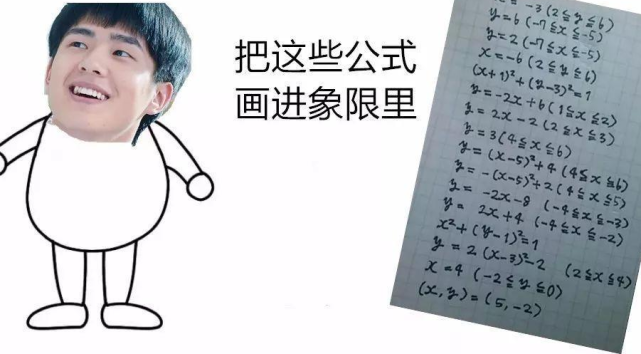 把这些公式
画进象限里
x = -3 (2 ≦ y ≦ 6)
y = 6 (-7 ≦ x ≦ -5)
y = 2 (-7 ≦ x ≦ -5)
x = -6 (2 ≦ y ≦ 6)
(x+1)² + (y-3)² = 1
y = -2x + 6 (1 ≦ x ≦ 2)
y = 2x - 2 (2 ≦ x ≦ 3)
y = 3 (4 ≦ x ≦ 6)
y = (x-5)² + 4 (4 ≦ x ≦ 6)
y = -(x-5)² + 2 (4 ≦ x ≦ 5)
y = -2x - 8 (-4 ≦ x ≦ -3)
y = 2x + 4 (-4 ≦ x ≦ -2)
x² + (y-1)² = 1
y = 2 (x-3)² - 2 (2 ≦ x ≦ 4)
x = 4 (-2 ≦ y ≦ 0)
(x, y) = (5, -2)